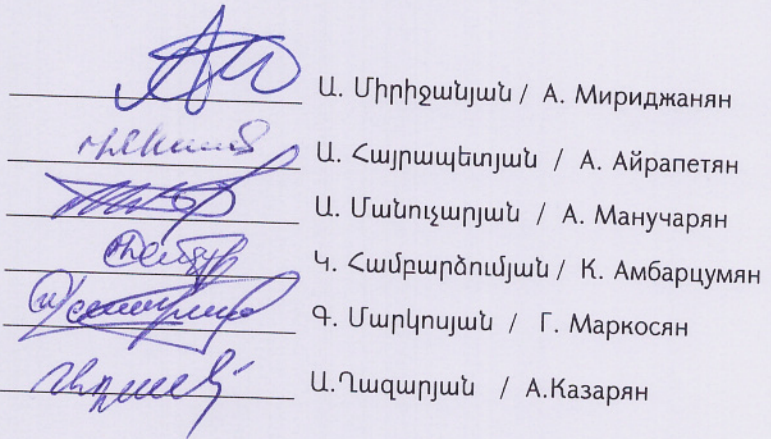 Ա. Միրիջանյան / А. Мириджанян
Ա. Հայրապետյան / А. Айрапетян
Ա. Մանուչարյան / А. Манучарян
Կ. Համբարձումյան / К. Амбарцумян
Գ. Մարկոսյան / Г. Маркосян
Ա.Ղազարյան / А.Казарян